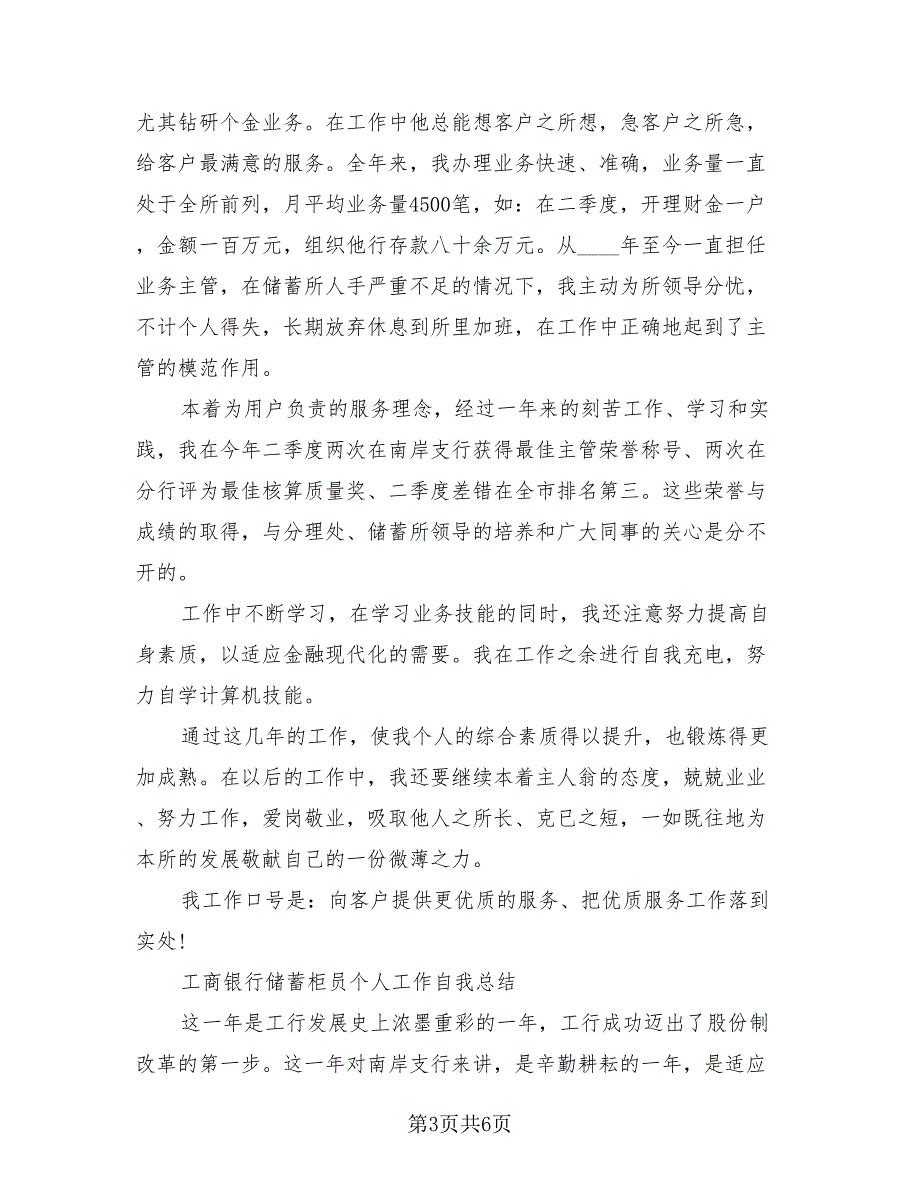 尤其钻研个金业务。在工作中他总能想客户之所想，急客户之所急，
给客户最满意的服务。全年来，我办理业务快速、准确，业务量一直
处于全所前列，月平均业务量4500笔，如：在二季度，开理财金一户
，金额一百万元，组织他行存款八十余万元。从____年至今一直担任
业务主管，在储蓄所人手严重不足的情况下，我主动为所领导分忧，
不计个人得失，长期放弃休息到所里加班，在工作中正确地起到了主
管的模范作用。
本着为用户负责的服务理念，经过一年来的刻苦工作、学习和实
践，我在今年二季度两次在南岸支行获得最佳主管荣誉称号、两次在
分行评为最佳核算质量奖、二季度差错在全市排名第三。这些荣誉与
成绩的取得，与分理处、储蓄所领导的培养和广大同事的关心是分不
开的。
工作中不断学习，在学习业务技能的同时，我还注意努力提高自
身素质，以适应金融现代化的需要。我在工作之余进行自我充电，努
力自学计算机技能。
通过这几年的工作，使我个人的综合素质得以提升，也锻炼得更
加成熟。在以后的工作中，我还要继续本着主人翁的态度，兢兢业业
、努力工作，爱岗敬业，吸取他人之所长、克已之短，一如既往地为
本所的发展敬献自己的一份微薄之力。
我工作口号是：向客户提供更优质的服务、把优质服务工作落到
实处!
工商银行储蓄柜员个人工作自我总结
这一年是工行发展史上浓墨重彩的一年，工行成功迈出了股份制
改革的第一步。这一年对南岸支行来讲，是辛勤耕耘的一年，是适应
第3页共6页